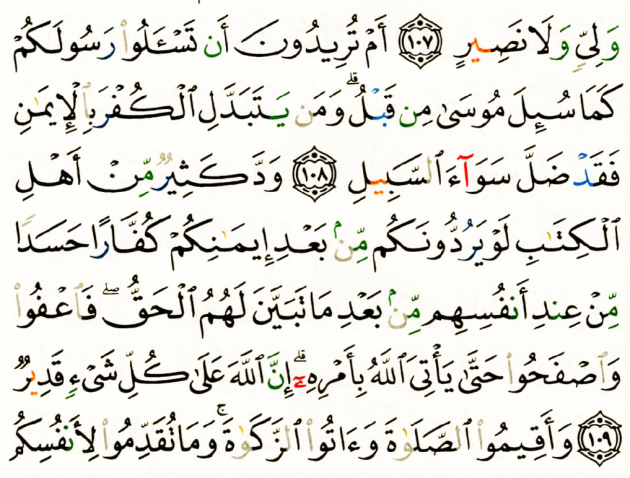 وَلِىٍّ وَلَا نَصِيرٍ ١٠٧ أَمْ تُرِيدُونَ أَن تَسْـَٔلُوا۟ رَسُولَكُمْ
كَمَا سُئِلَ مُوسَىٰ مِن قَبْلُ ۗ وَمَن يَتَبَدَّلِ ٱلْكُفْرَ بِٱلْإِيمَـٰنِ
فَقَدْ ضَلَّ سَوَآءَ ٱلسَّبِيلِ ١٠٨ وَدَّ كَثِيرٌ مِّنْ أَهْلِ
ٱلْكِتَـٰبِ لَوْ يَرُدُّونَكُم مِّنۢ بَعْدِ إِيمَـٰنِكُمْ كُفَّارًا حَسَدًا
مِّنْ عِندِ أَنفُسِهِم مِّنۢ بَعْدِ مَا تَبَيَّنَ لَهُمُ ٱلْحَقُّ ۖ فَٱعْفُوا۟
وَٱصْفَحُوا۟ حَتَّىٰ يَأْتِىَ ٱللَّهُ بِأَمْرِهِۦٓ ۗ إِنَّ ٱللَّهَ عَلَىٰ كُلِّ شَىْءٍ قَدِيرٌ
١٠٩ وَأَقِيمُوا۟ ٱلصَّلَوٰةَ وَءَاتُوا۟ ٱلزَّكَوٰةَ ۚ وَمَا تُقَدِّمُوا۟ لِأَنفُسِكُم